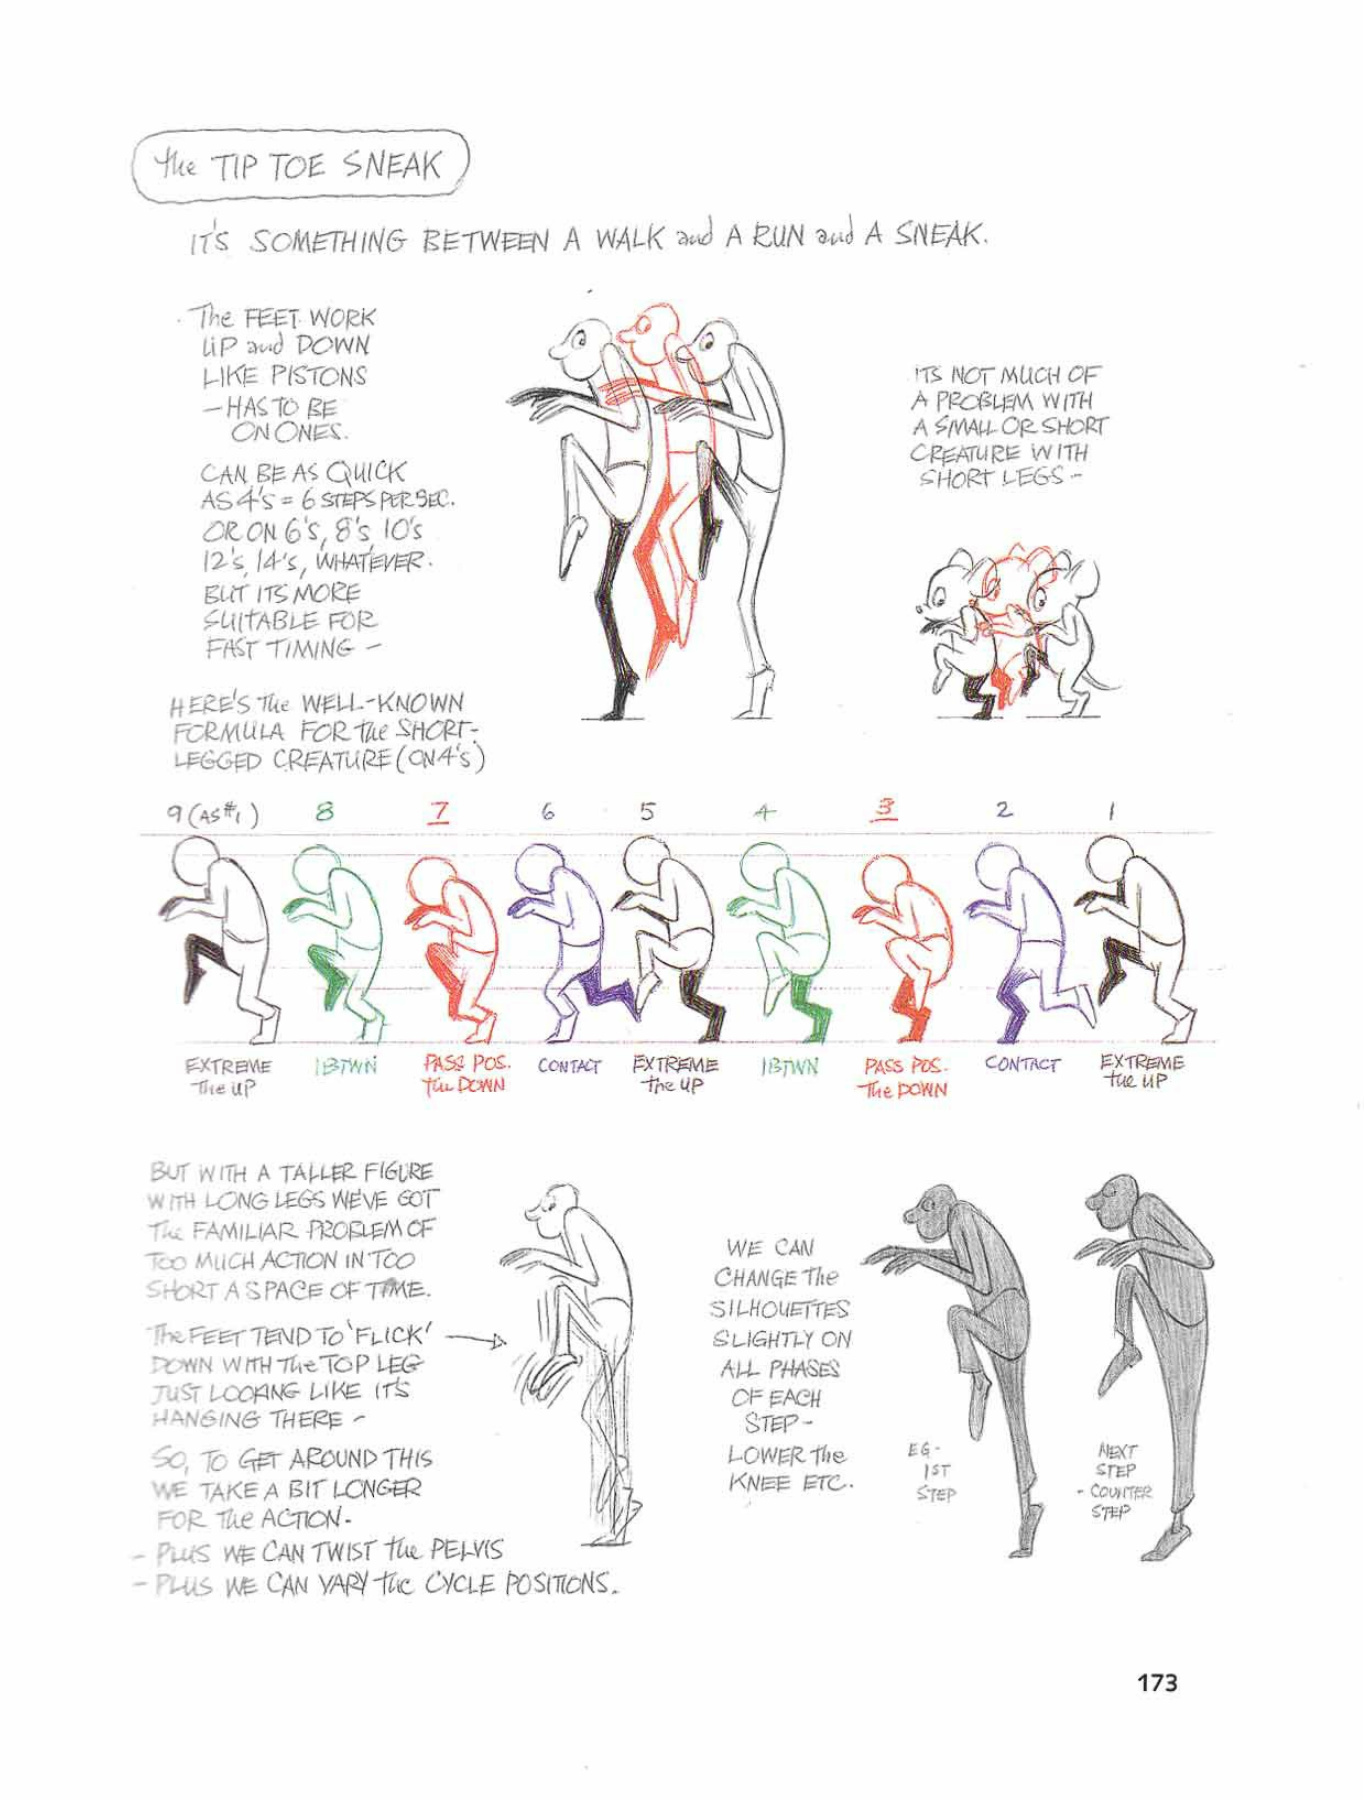 the TIP TOE SNEAK
IT'S SOMETHING BETWEEN A WALK and A RUN and A SNEAK.
The FEET WORK
UP and DOWN
LIKE PISTONS
- HAS TO BE
ON ONES.
CAN BE AS QUICK
AS 4'S = 6 STEPS PER SEC.
OR ON 6'S, 8'S, 10'S
12'S, 14'S, WHATEVER.
BUT ITS MORE
SUITABLE FOR
FAST TIMING -
ITS NOT MUCH OF
A PROBLEM WITH
A SMALL OR SHORT
CREATURE WITH
SHORT LEGS -
HERE'S The WELL-KNOWN
FORMULA FOR the SHORT-
LEGGED CREATURE (ON 4'S)
9 (AS #1) 8 7 6 5 4 3 2 1
EXTREME The UP
IBTWN
PASS POS. the DOWN
CONTACT
EXTREME the UP
IBTWN
PASS POS. The DOWN
CONTACT
EXTREME the UP
BUT WITH A TALLER FIGURE
WITH LONG LEGS WE'VE GOT
The FAMILIAR PROBLEM OF
TOO MUCH ACTION IN TOO
SHORT A SPACE OF TIME.
The FEET TEND TO 'FLICK'
DOWN WITH The TOP LEG
JUST LOOKING LIKE IT'S
HANGING THERE -
SO, TO GET AROUND THIS
WE TAKE A BIT LONGER
FOR The ACTION.
- PLUS WE CAN TWIST the PELVIS
- PLUS WE CAN VARY the CYCLE POSITIONS.
WE CAN
CHANGE The
SILHOUETTES
SLIGHTLY ON
ALL PHASES
OF EACH
STEP -
LOWER the
KNEE ETC.
EG -
1ST
STEP
NEXT
STEP
- COUNTER
STEP
173